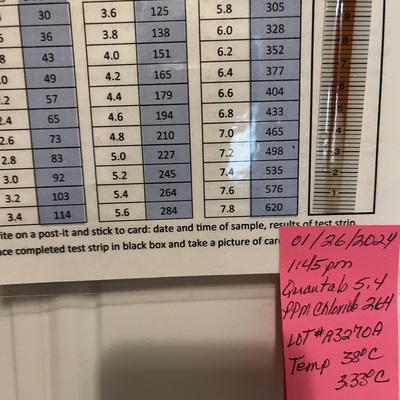 30 3.6 125 5.8 305
36 3.8 138 6.0 328
43 4.0 151 6.2 352
49 4.2 165 6.4 377
.2 57 4.4 179 6.6 404
2.4 65 4.6 194 6.8 433
2.6 73 4.8 210 7.0 465
2.8 83 5.0 227 7.2 498
3.0 92 5.2 245 7.4 535
3.2 103 5.4 264 7.6 576
3.4 114 5.6 284 7.8 620
ite on a post-it and stick to card: date and time of sample, results of test strip
ace completed test strip in black box and take a picture of car
01/26/2024
1:45pm
Quantab 5.4
PPM Chloride 264
LOT # A3270A
Temp 38°C
3.33°C